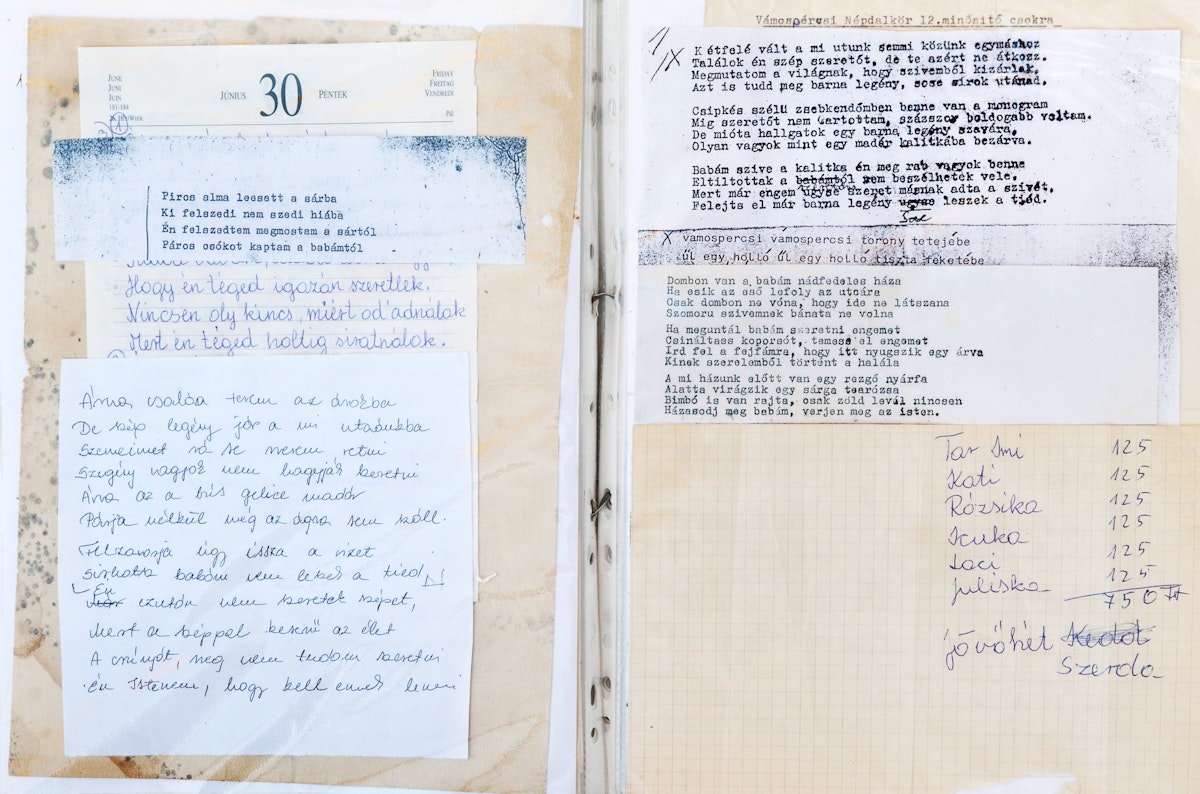 JUNE
JUNI
JUIN
181-184
26. Hét/Week
JÚNIUS 30 PÉNTEK
FRIDAY
FREITAG
VENDREDI
Pál
Piros alma leesett a sárba
Ki felszedi nem szedi hiába
Én felszedtem megmostam a sártól
Páros csókot kaptam a babámtól
Hogy én téged igazán szeretlek.
Nincsen oly kincs, miért od'adnálak
Mert én téged holtig siratnálak.
Árva csalán terem az árokba
De szép legény jár a mi utcánkba
Szemeimet rá se merem vetni
Szegény vagyok nem hagyják szeretni
Árva az a bús gelice madár
Párja nélkül még az ágra sem száll.
Felzavarja úgy issza a vizet
babám nem leszek a tied
Én ezután nem szeretek szépet,
Mert a széppel keserű az élet
A csúnyát, meg nem tudom szeretni
Én Istenem, hogy kell ennek lenni
Vámospércsi Népdalkör 12.minősitő csokra
1/x
Kétfelé vált a mi utunk semmi közünk egymáshoz
Találok én szép szeretőt, de te azért ne átkozz.
Megmutatom a világnak, hogy szivemből kizárlak.
Azt is tudd meg barna legény, sose sirok utánad.
Csipkés szélü zsebkendőmben benne van a monogram
Mig szeretőt nem tartottam, százszor boldogabb voltam.
De mióta hallgatok egy barna legény szavára,
Olyan vagyok mint egy madár kalitkába bezárva.
Babám szive a kalitka én meg rab vagyok benne
Eltiltottak a babámtól nem beszélhetek vele.
Mert már engem ugyse szeret másnak adta a szivét.
Felejts el már barna legény ugyse leszek a tiéd.
Sose
X vámospércsi vámospércsi torony tetejébe
űl egy holló űl egy holló tiszta feketébe
Dombon van a babám nádfedeles háza
Ha esik az eső lefoly az utcára
Csak dombon ne vóna, hogy ide ne látszana
Szomoru szivemnek bánata ne volna
Ha meguntál babám szeretni engemet
Csináltass koporsót, temess'el engemet
Ird fel a fejfámra, hogy itt nyugszik egy árva
Kinek szerelemből történt a halála
A mi házunk előtt van egy rezgő nyárfa
Alatta virágzik egy sárga tearózsa
Bimbó is van rajta, csak zöld levél nincsen
Házasodj meg babám, verjen meg az isten.
Tar Imi 125
Kati 125
Rózsika 125
Icuka 125
Laci 125
Juliska 125
750 Ft
jövőhét Kedd
Szerda